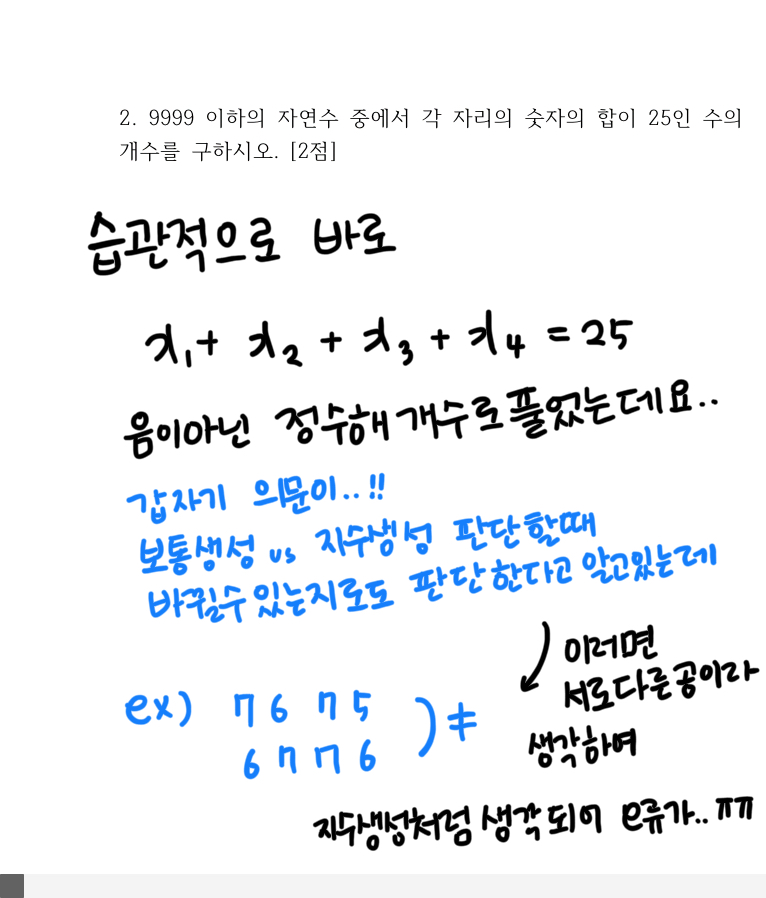 2. 9999 이하의 자연수 중에서 각 자리의 숫자의 합이 25인 수의
개수를 구하시오. [2점]
습관적으로 바로
x₁+ x₂ + x₃ + x₄ = 25
음이아닌 정수해 개수로 풀었는데요..
갑자기 의문이..!!
보통생성 vs 지수생성 판단할때
바뀔수있는지로도 판단한다고 알고있는데
이러면
서로다른공이라
생각하여
ex) 7 6 7 5
6 7 7 6 ) ≠
지수생성처럼 생각되어 e류가..ㅠㅠ